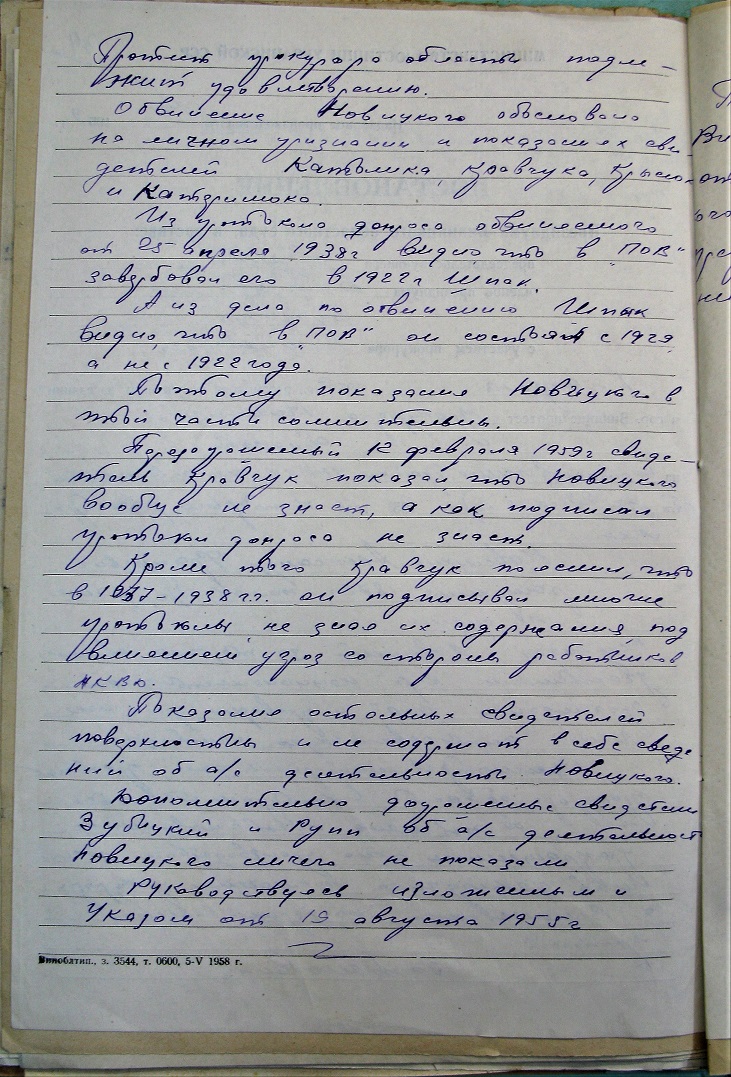 Протест прокурора области подле-
жит удовлетворению.
Обвинение Новицкого обосновано
на личном признании и показаниях сви-
детелей Католика Кравчука, Крыс
и Катеринюка.
Из протокола допроса обвиняемого
от 25 апреля 1938г видно что в "ПОВ"
завербовал его в 1922г Шпак.
А из дела по обвинению Шпак
видно, что в "ПОВ" он состоял с 1929,
а не с 1922 года.
Поэтому показания Новицкого в
этой части сомнительны.
Передопрошенный 12 февраля 1959г свиде-
тель Кравчук показал, что Новицкого
вообще не знает, а как подписал
протокол допроса не знает.
Кроме того Кравчук пояснил, что
в 1937-1938 г.г. он подписывал многие
протоколы не зная их содержания, под
влиянием угроз со стороны работников
НКВД.
Показания остальных свидетелей
поверхностны и не содержат в себе сведе-
ний об а/с деятельности Новицкого.
Дополнительно допрошенные свидетели
Зубицкий и Рупп об а/с деятельност
Новицкого ничего не показали
Руководствуясь изложенным и
Указом от 19 августа 1955г
Виноблтип., з. 3544, т. 0600, 5-V 1958 г.